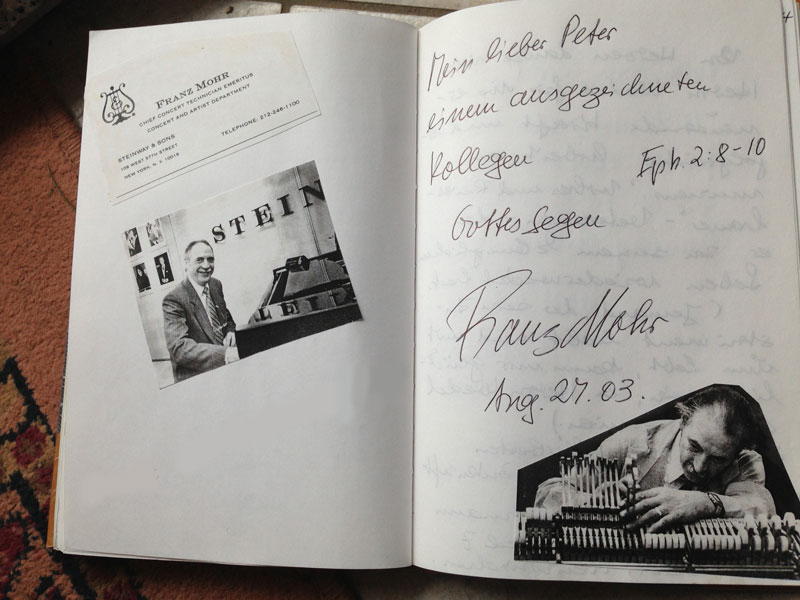 FRANZ MOHR
CHIEF CONCERT TECHNICIAN EMERITUS
CONCERT AND ARTIST DEPARTMENT
STEINWAY & SONS
109 WEST 57TH STREET
NEW YORK, N. Y. 10019
TELEPHONE: 212-246-1100
STEIN
Mein lieber Peter
einem ausgezeichneten
Kollegen
Eph. 2:8-10
Gottes Segen
Franz Mohr
Aug. 27. 03.